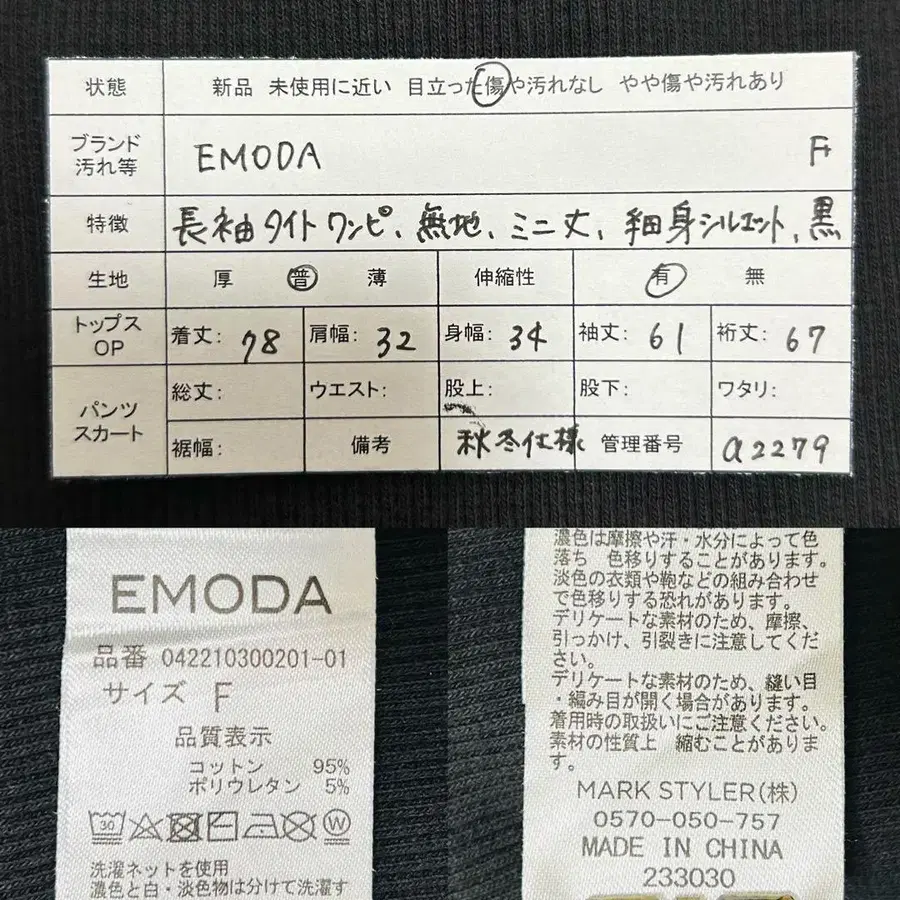 状態 新品 未使用に近い 目立った傷や汚れなし やや傷や汚れあり
ブランド
汚れ等 EMODA F
特徴 長袖タイトワンピ、無地、ミニ丈、細身シルエット、黒
生地 厚 普 薄 伸縮性 有 無
トップス
OP 着丈: 78 肩幅: 32 身幅: 34 袖丈: 61 裄丈: 67
パンツ
スカート 総丈: ウエスト: 股上: 股下: ワタリ:
裾幅: 備考 秋冬仕様 管理番号 a2279
EMODA
品番 042210300201-01
サイズ F
品質表示
コットン 95%
ポリウレタン 5%
30 W
洗濯ネットを使用
濃色と白・淡色物は分けて洗濯す
濃色は摩擦や汗・水分によって色
落ち 色移りすることがあります。
淡色の衣類や鞄などの組み合わせ
で色移りする恐れがあります。
デリケートな素材のため、摩擦、
引っかけ、引裂きに注意してくだ
さい。
デリケートな素材のため、縫い目
・編み目が開く場合があります。
着用時の取扱いにご注意ください。
素材の性質上 縮むことがありま
す。
MARK STYLER(株)
0570-050-757
MADE IN CHINA
233030